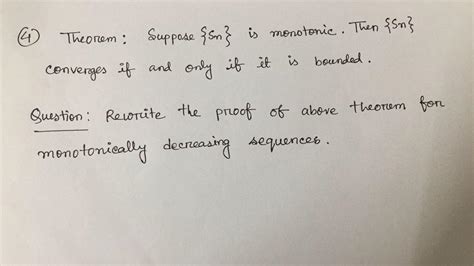 ④ Theorem: Suppose {Sn} is monotonic. Then {Sn}
converges if and only if it is bounded.
Question: Rewrite the proof of above theorem for
monotonically decreasing sequences.